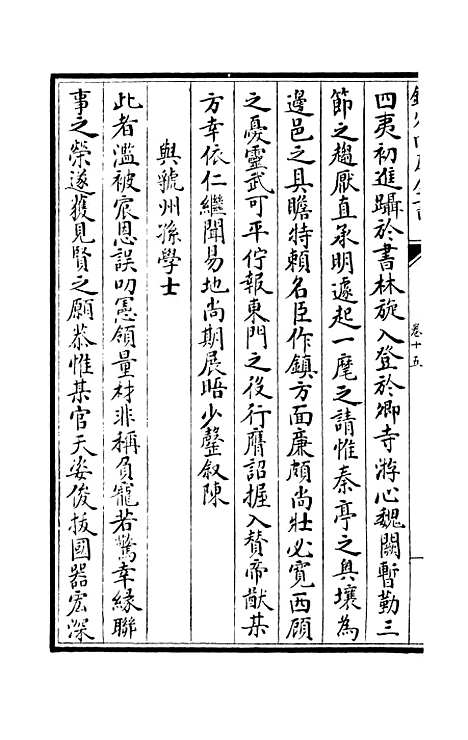 四夷初進躡於書林旋入登於卿寺游心魏闕暫勤三
節之趨厭直承明遽起一麾之請惟秦亭之奧壤為
邊邑之具瞻特賴名臣作鎮方面廉頗尚壯必寛西顧
之憂靈武可平佇報東門之役行膺詔握入賛帝猷某
方幸依仁繼聞易地尚期展晤少罄叙陳
與虢州孫學士
此者濫被宸恩誤叨憲領量材非稱負寵若驚幸緣聯
事之榮遂獲見賢之願恭惟某官天姿俊拔國器宏深
卷十五